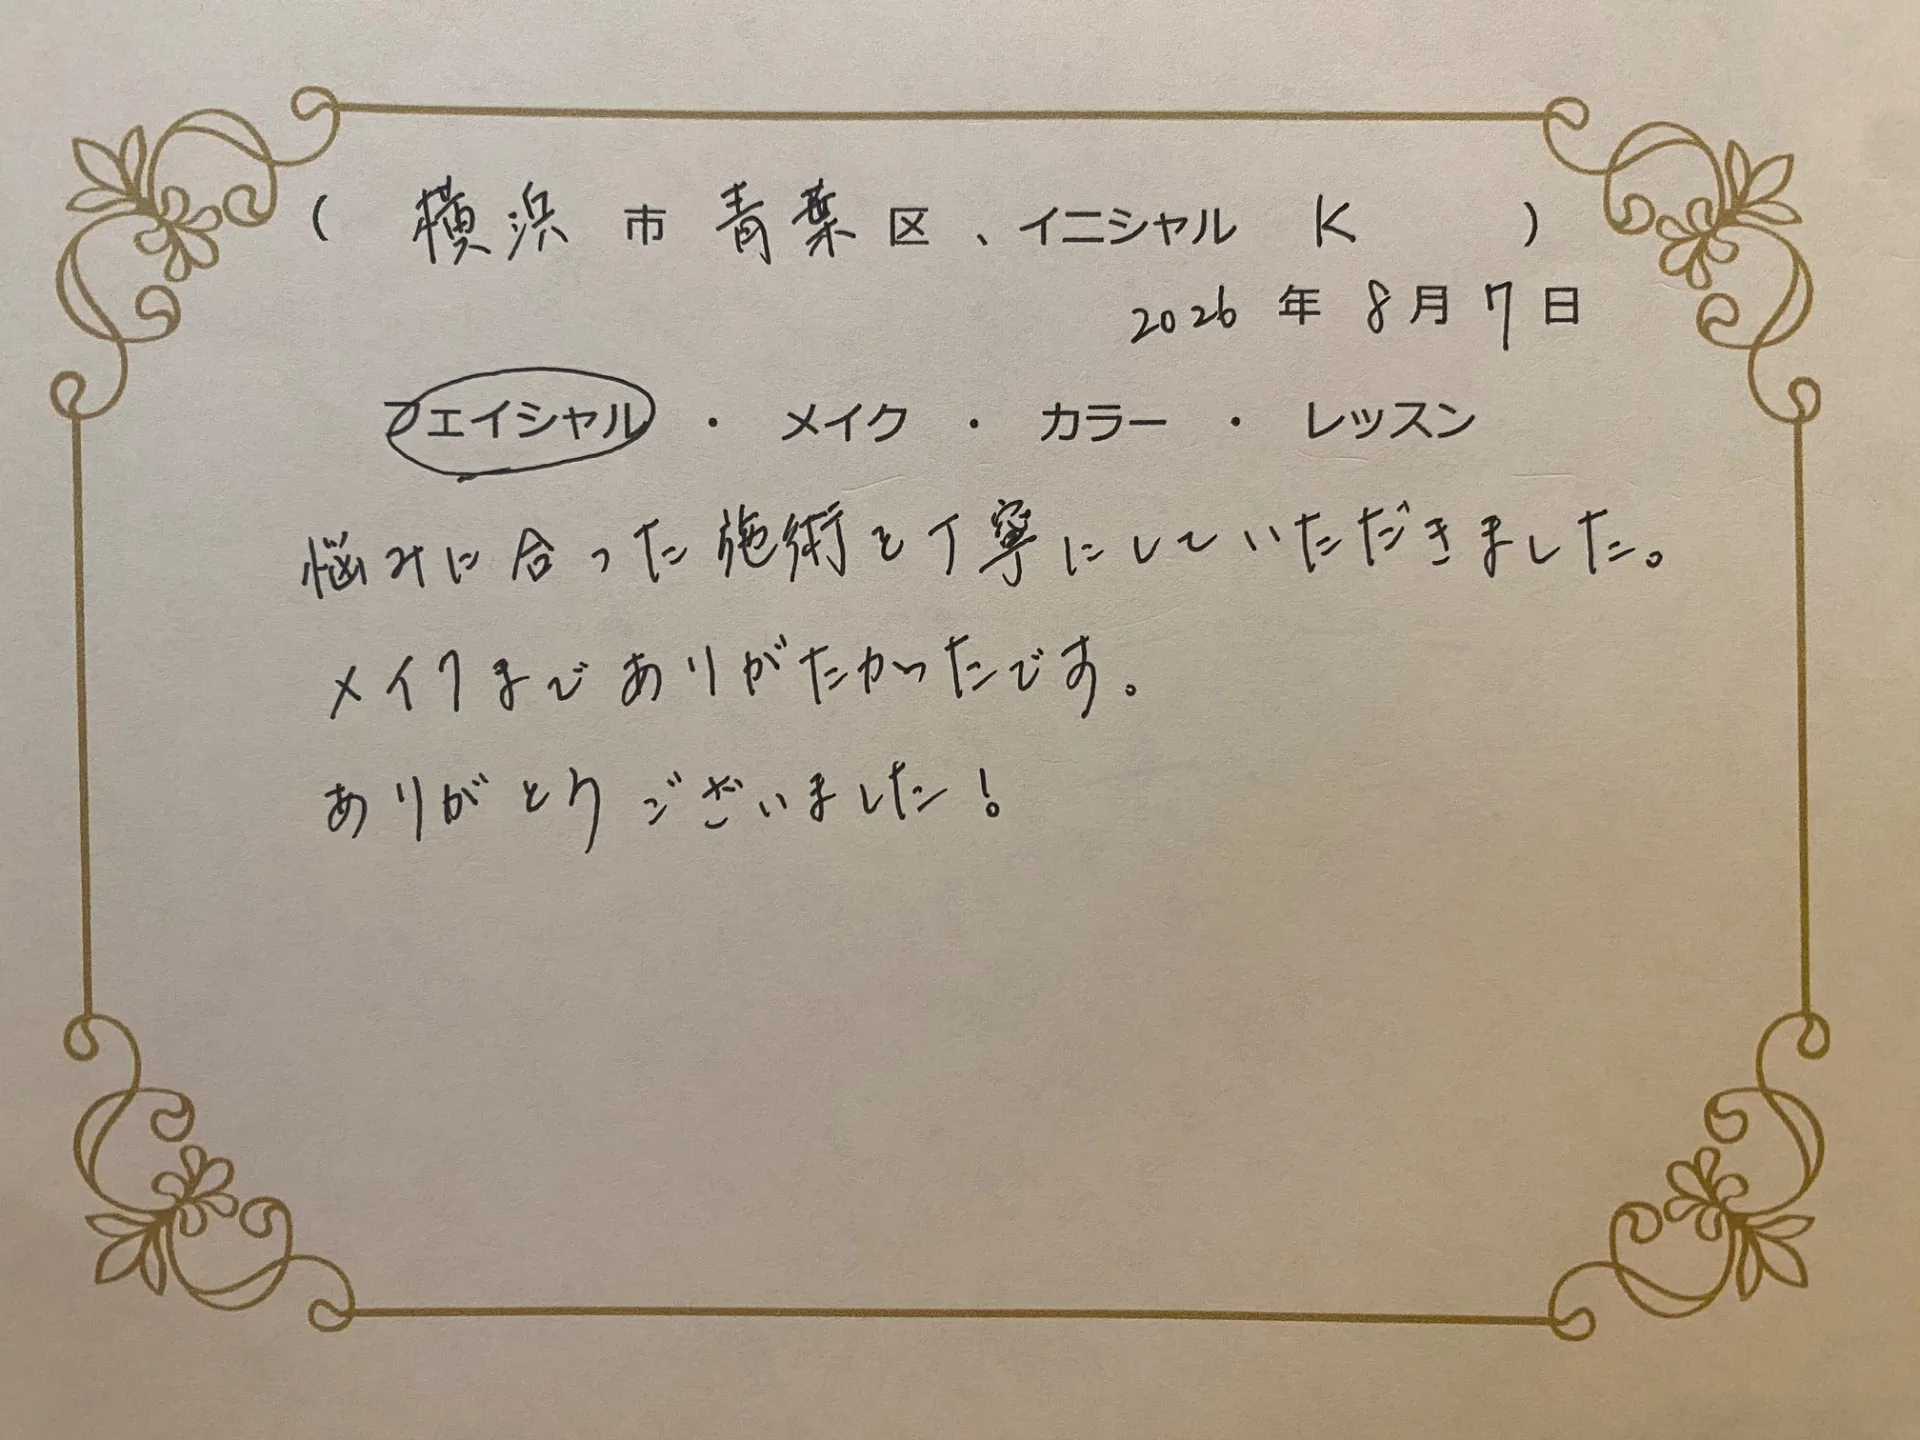 ( 横浜 市 青葉 区 、イニシャル K )
2026 年 8月 7日
フェイシャル ・ メイク ・ カラー ・ レッスン
悩みに合った施術を丁寧にしていただきました。
メイクまでありがたかったです。
ありがとうございました!